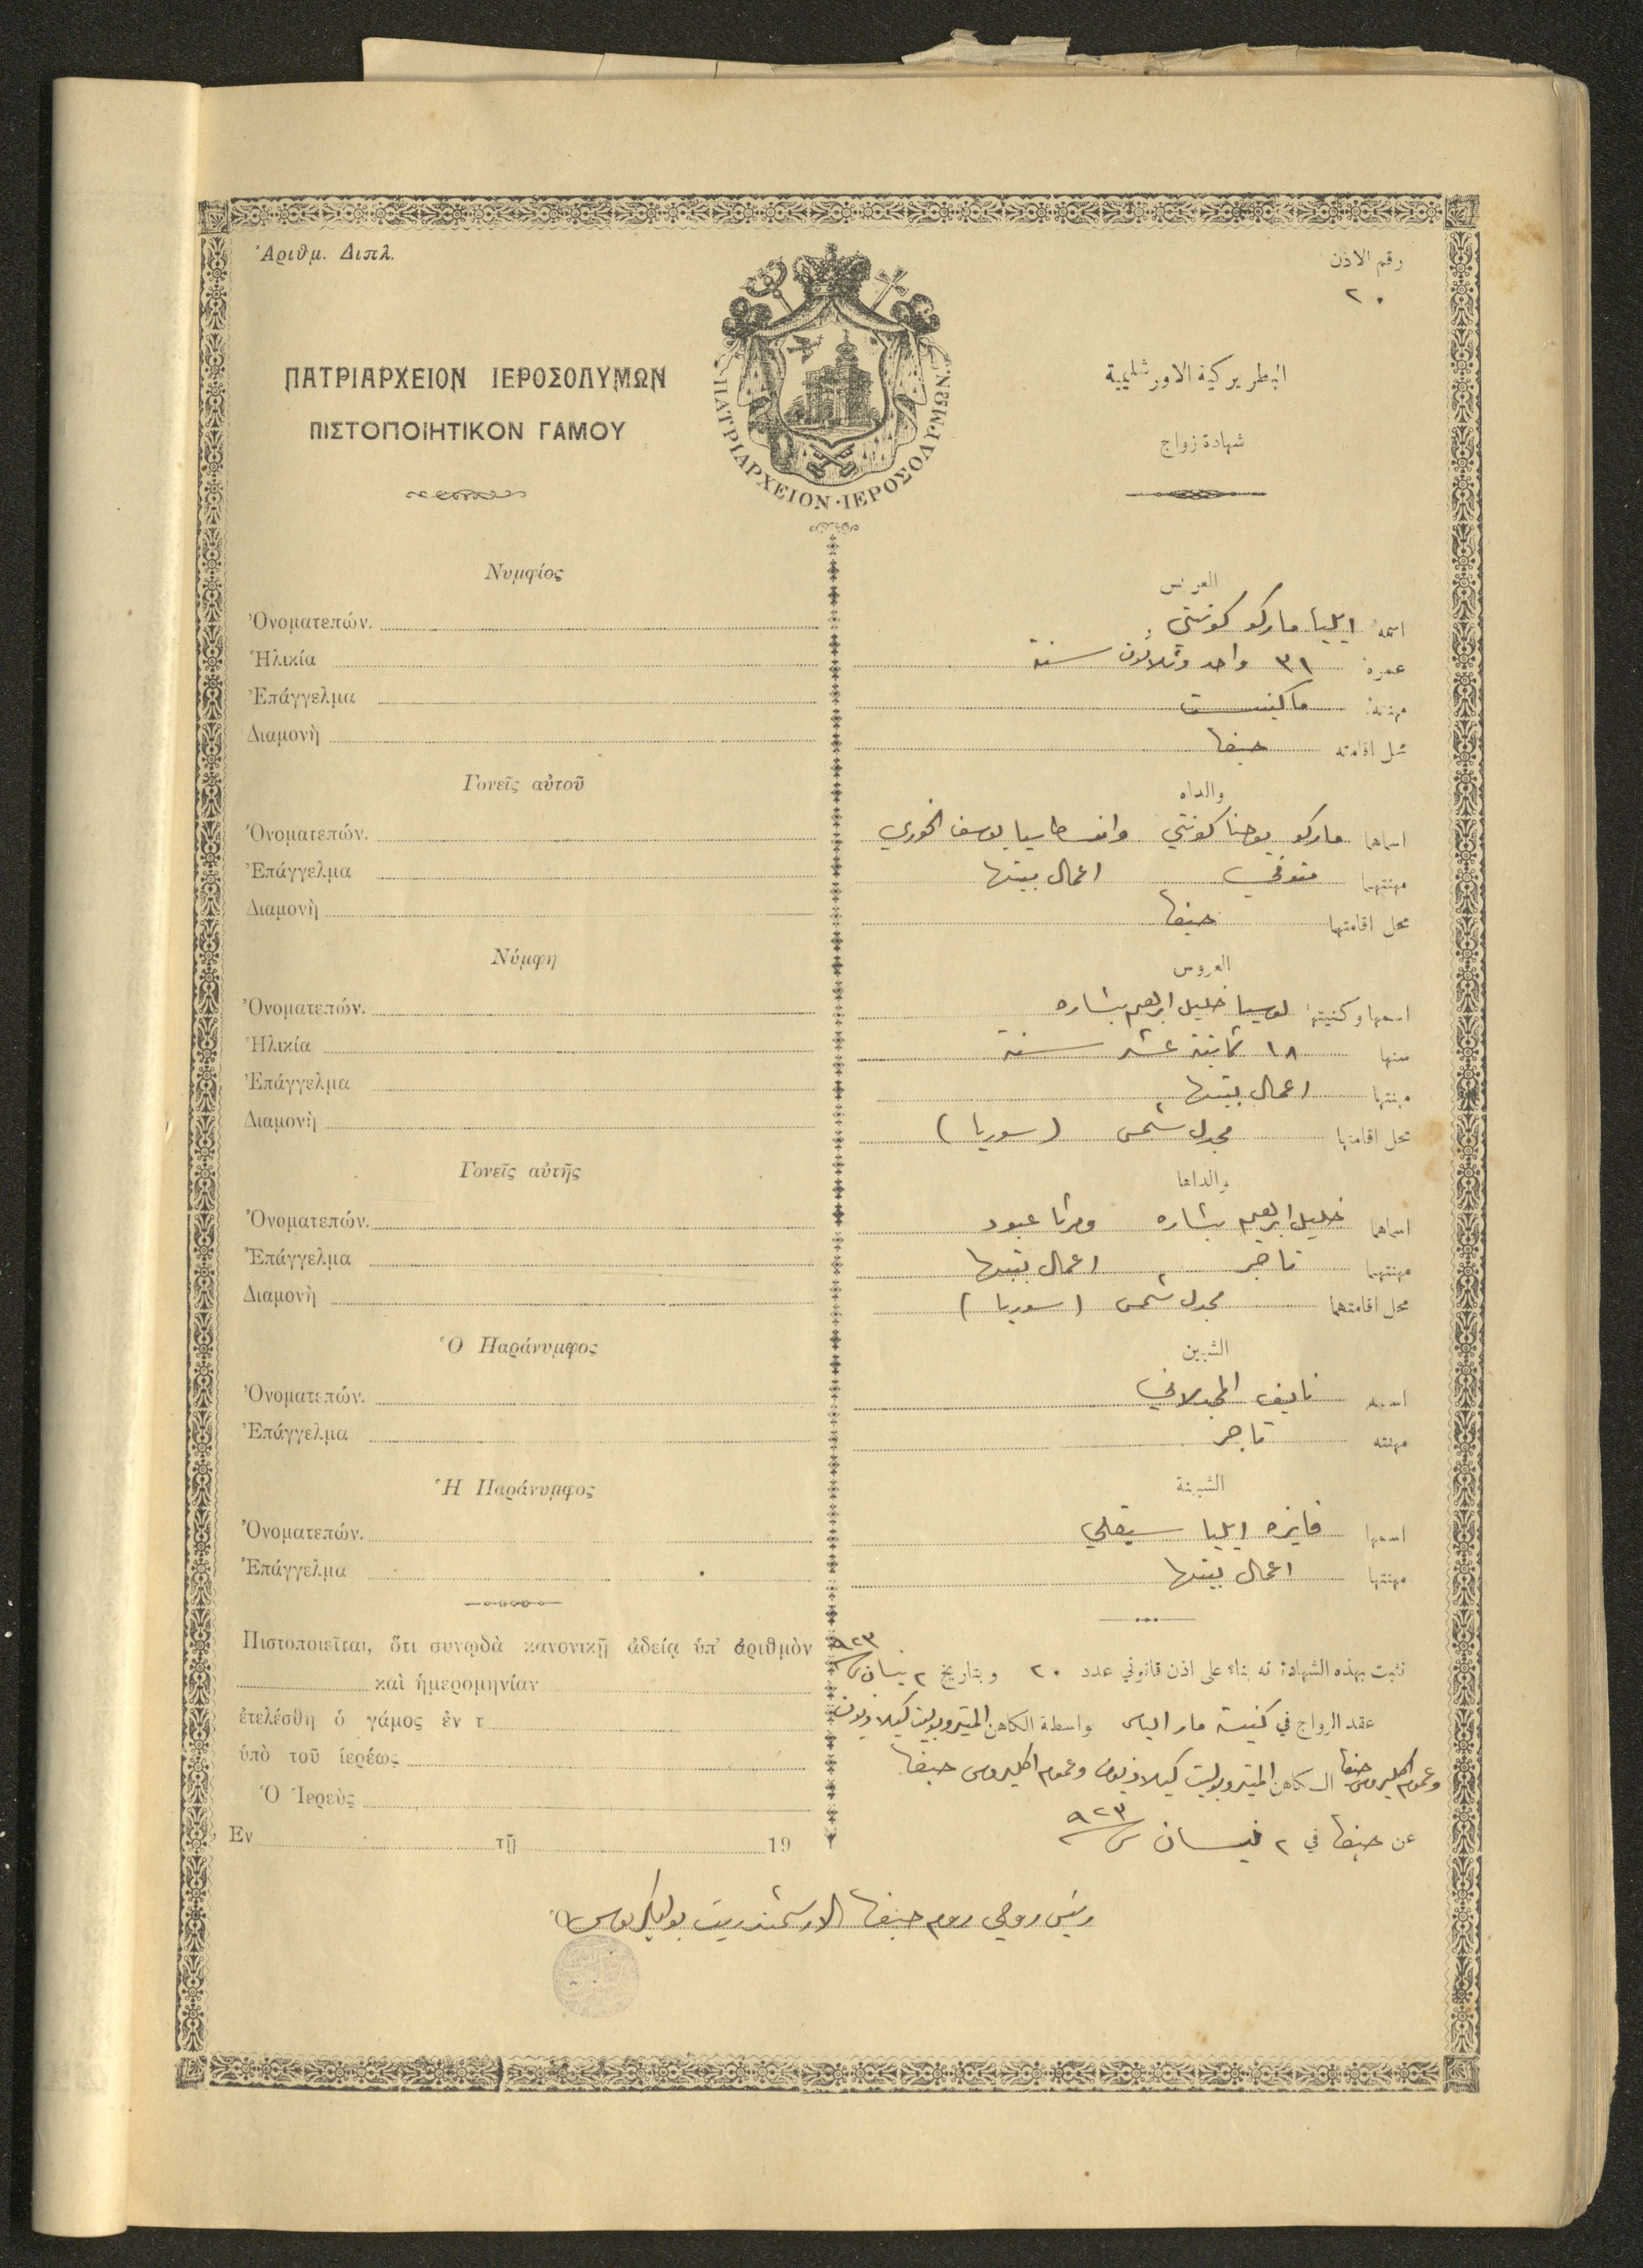 Ἀριθμ. Διπλ.
رقم الاذن
٢٠
ΠΑΤΡΙΑΡΧΕΙΟΝ ΙΕΡΟΣΟΛΥΜΩΝ
ΠΙΣΤΟΠΟΙΗΤΙΚΟΝ ΓΑΜΟΥ
ΠΑΤΡΙΑΡΧΕΙΟΝ·ΙΕΡΟΣΟΛΥΜΩΝ·
البطريركية الاورشليمية
شهادة زواج
Νυμφίος
Ὀνοματεπών.
Ἡλικία
Ἐπάγγελμα
Διαμονὴ
Γονεῖς αὐτοῦ
Ὀνοματεπών.
Ἐπάγγελμα
Διαμονὴ
Νύμφη
Ὀνοματεπών.
Ἡλικία
Ἐπάγγελμα
Διαμονὴ
Γονεῖς αὐτῆς
Ὀνοματεπών.
Ἐπάγγελμα
Διαμονὴ
Ὁ Παράνυμφος
Ὀνοματεπών.
Ἐπάγγελμα
Ἡ Παράνυμφος
Ὀνοματεπών.
Ἐπάγγελμα
Πιστοποιεῖται, ὅτι συνῳδὰ κανονικῇ ἀδείᾳ ὑπ' ἀριθμὸν
καὶ ἡμερομηνίαν
ἐτελέσθη ὁ γάμος ἐν τ
ὑπὸ τοῦ ἱερέως
Ὁ Ἱερεὺς
Ἐν τῇ 19
العريس
اسمه ايليا ماركو كونتي
عمره ٣١ واحد وثلاثون سنة
مهنته ماكينست
محل اقامته حيفا
والداه
اسماهما ماركو يوحنا كونتي وانسطاسيا يوسف الخوري
مهنتهما متوفي اعمال بيتها
محل اقامتهما حيفا
العروس
اسمها وكنيتها لوسيا خليل ابراهيم بشاره
سنها ١٨ ثمانية عشر سنة
مهنتها اعمال بيتها
محل اقامتها مجدل شمس (سوريا)
والداها
اسماهما خليل ابراهيم بشاره ومرتا عبود
مهنتهما تاجر اعمال بيتها
محل اقامتهما مجدل شمس (سوريا)
الشبين
اسمه نايف المجدلاني
مهنته تاجر
الشبينة
اسمها فايزه ايليا سيقلي
مهنتها اعمال بيتها
نثبت بهذه الشهادة انه بناء على اذن قانوني عدد ٢٠ وبتاريخ ٢ نيسان س ٩٢٣
عقد الزواج في كنيسة مار الياس بواسطة الكاهن المتروبوليت كيلاذيون
وعموم اكليروس حيفا الكاهن المتروبوليت كيلاذيون وعموم اكليروس حيفا
عن حيفا في ٢ نيسان س ٩٢٣
رئيس روحي روم حيفا الارشمندريت